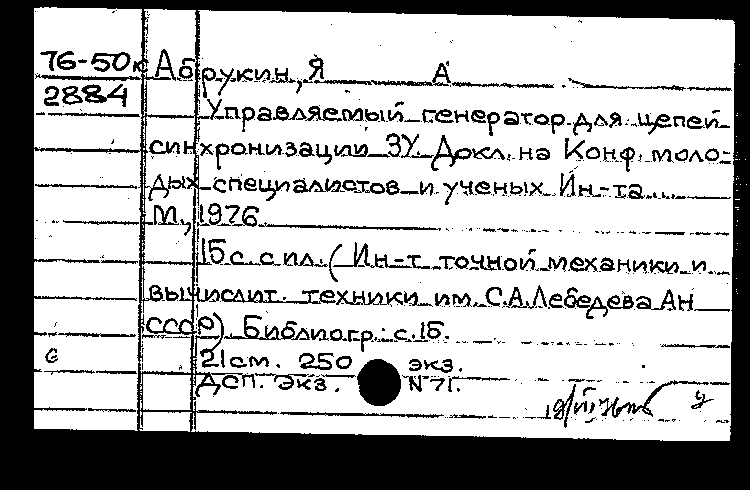 76-50к Абрукин, Я А
2884 Управляемый генератор для цепей
синхронизации ЗУ. Докл. на Конф. моло-
дых специалистов и ученых Ин-та...
М., 1976.
15 с. с ил. (Ин-т точной механики и
вычислит. техники им. С.А. Лебедева Ан
СССР). Библиогр.: с. 15.
21 см. 250 экз.
ДСП. Экз. N 71.